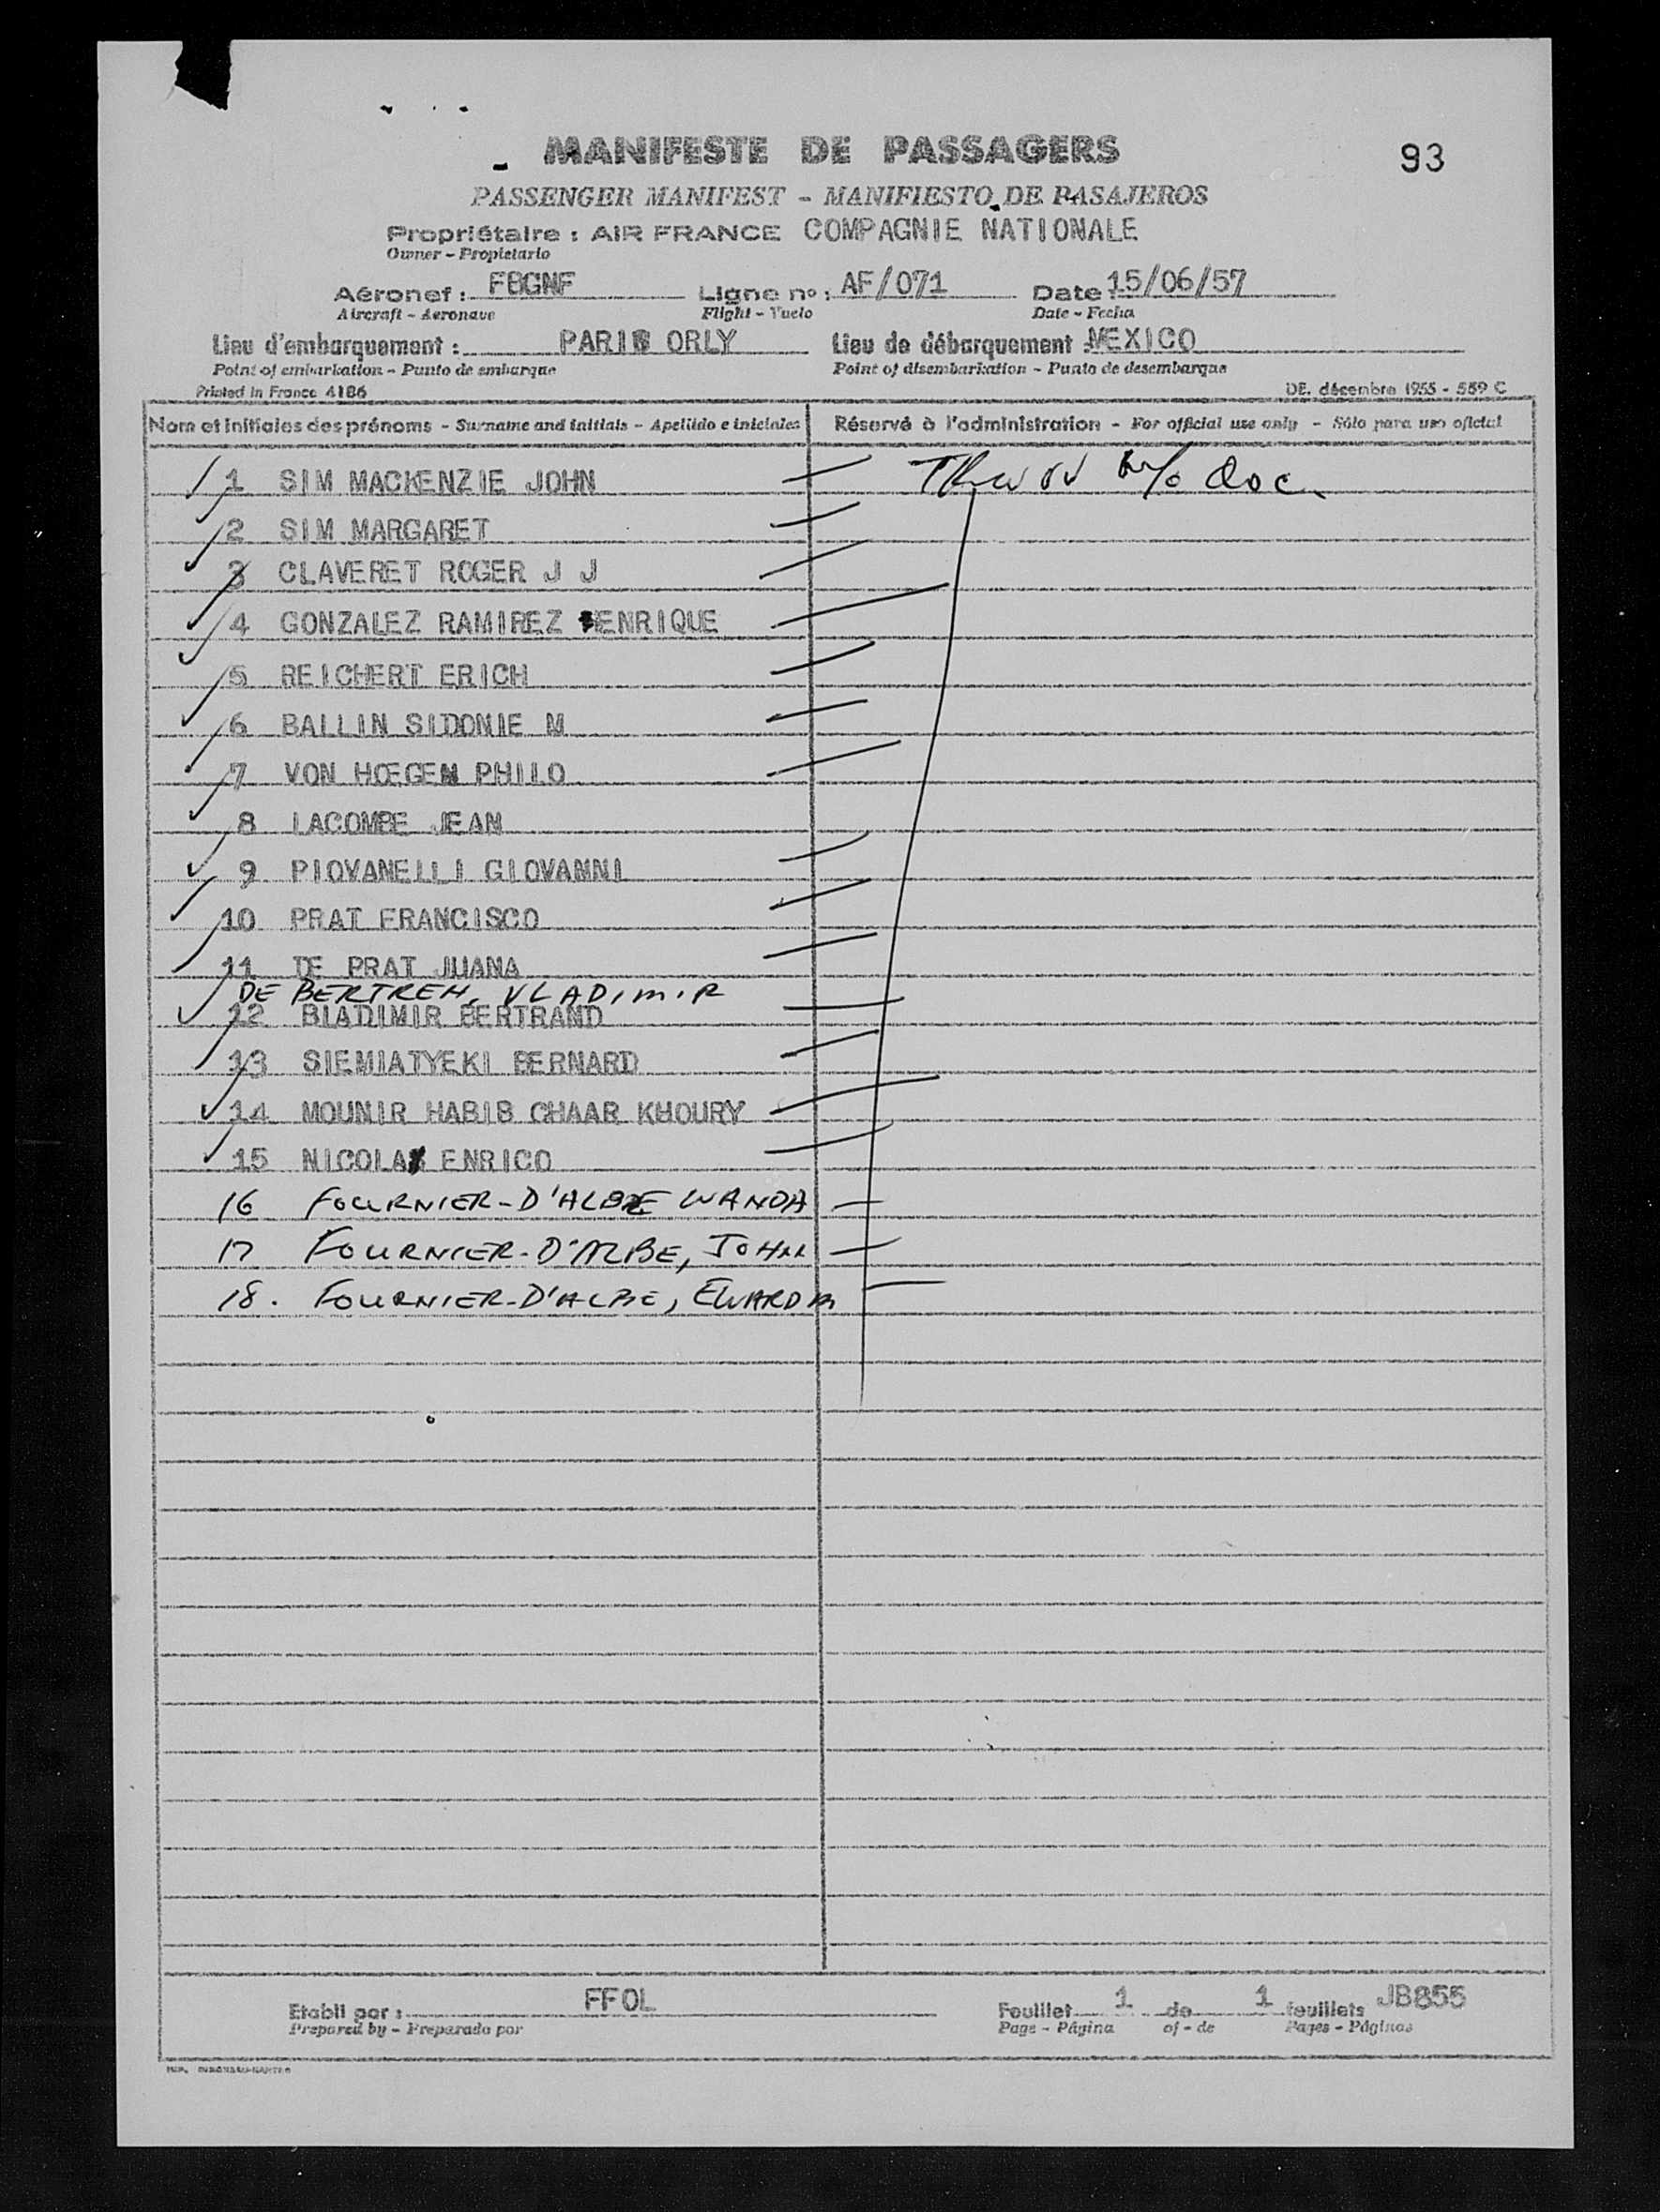 MANIFESTE DE PASSAGERS
93
PASSENGER MANIFEST - MANIFIESTO DE PASAJEROS
Propriétaire : AIR FRANCE COMPAGNIE NATIONALE
Owner - Propietario
Aéronef : FBGNF Ligne no : AF/071 Date : 15/06/57
Aircraft - Aeronave Flight - Vuelo Date - Fecha
Lieu d'embarquement : PARIS ORLY Lieu de débarquement : MEXICO
Point of embarkation - Punto de embarque Point of disembarkation - Punto de desembarque
Printed in France 4186 DE. décembre 1955 - 559 C
Nom et initiales des prénoms - Surname and initials - Apellido e iniciales Réservé à l'administration - For official use only - Sólo para uso oficial
1 SIM MACKENZIE JOHN w/o doc.
2 SIM MARGARET
3 CLAVERET ROGER J J
4 GONZALEZ RAMIREZ ENRIQUE
5 REICHERT ERICH
6 BALLIN SIDONIE M
7 VON HŒGEN PHILO
8 LACOMBE JEAN
9 PIOVANELLI GIOVANNI
10 PRAT FRANCISCO
11 DE PRAT JUANA
DE BERTREN, VLADIMIR
12 BLADIMIR BERTRAND
13 SIEMIATYEKI BERNARD
14 MOUNIR HABIB CHAAR KHOURY
15 NICOLA ENRICO
16 FOURNIER-D'ALBE WANDA
17 FOURNIER-D'ALBE, JOHN
18. FOURNIER-D'ALBE, EWARD M
Etabli par : FFOL Feuillet 1 de 1 feuillets JB855
Prepared by - Preparado por Page - Página of - de Pages - Páginas